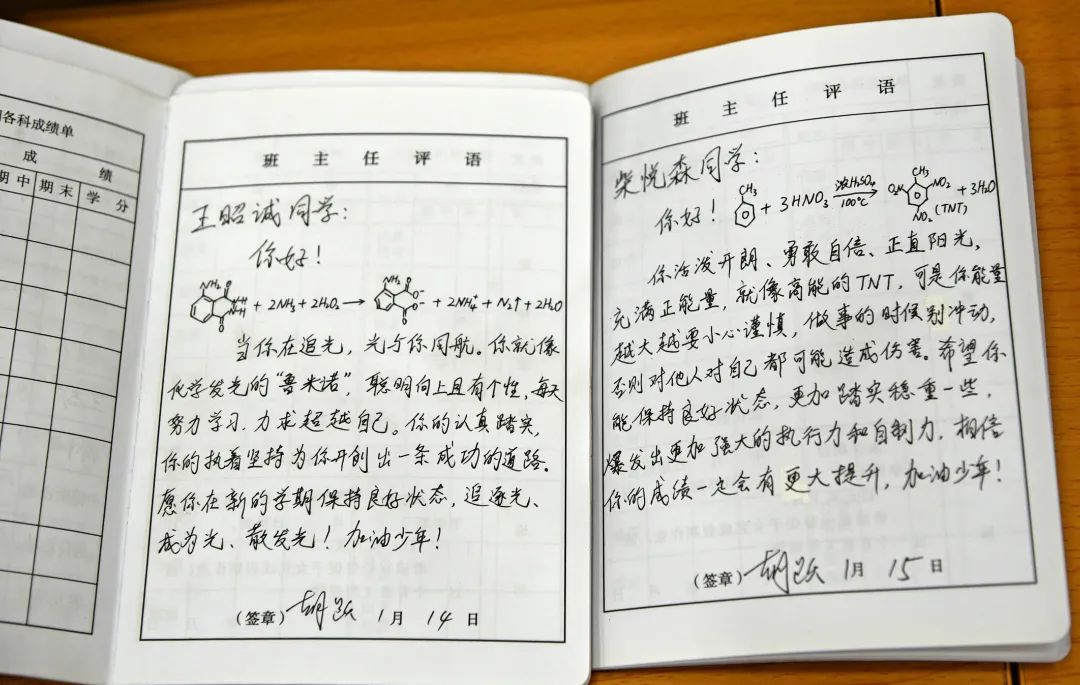 各科成绩单
成 绩
期中 期末 学分
班主任评语
王昭诚同学：
你好！
NH₂ NH NH + 2NH₃ + 2H₂O₂ → NH₂ O⁻ O⁻ + 2NH₄⁺ + N₂↑ + 2H₂O
当你在追光，光与你同航。你就像
化学发光的“鲁米诺”，聪明向上且有个性，每天
努力学习，力求超越自己。你的认真踏实，
你的执着坚持为你开创出一条成功的道路。
愿你在新的学期保持良好状态，追逐光、
成为光、散发光！加油少年！
（签章）胡跃 1月 14 日
班主任评语
柴悦森同学：
你好！ CH₃ + 3HNO₃ 浓H₂SO₄ 100℃ → CH₃ O₂N NO₂ NO₂ (TNT) + 3H₂O
你活泼开朗、勇敢自信、正直阳光，
充满正能量，就像高能的TNT，可是你能量
越大越要小心谨慎，做事的时候别冲动，
否则对他人对自己都可能造成伤害。希望你
能保持良好状态，更加踏实稳重一些，
爆发出更加强大的执行力和自制力，相信
你的成绩一定会有更大提升，加油少年！
（签章）胡跃 1月 15 日